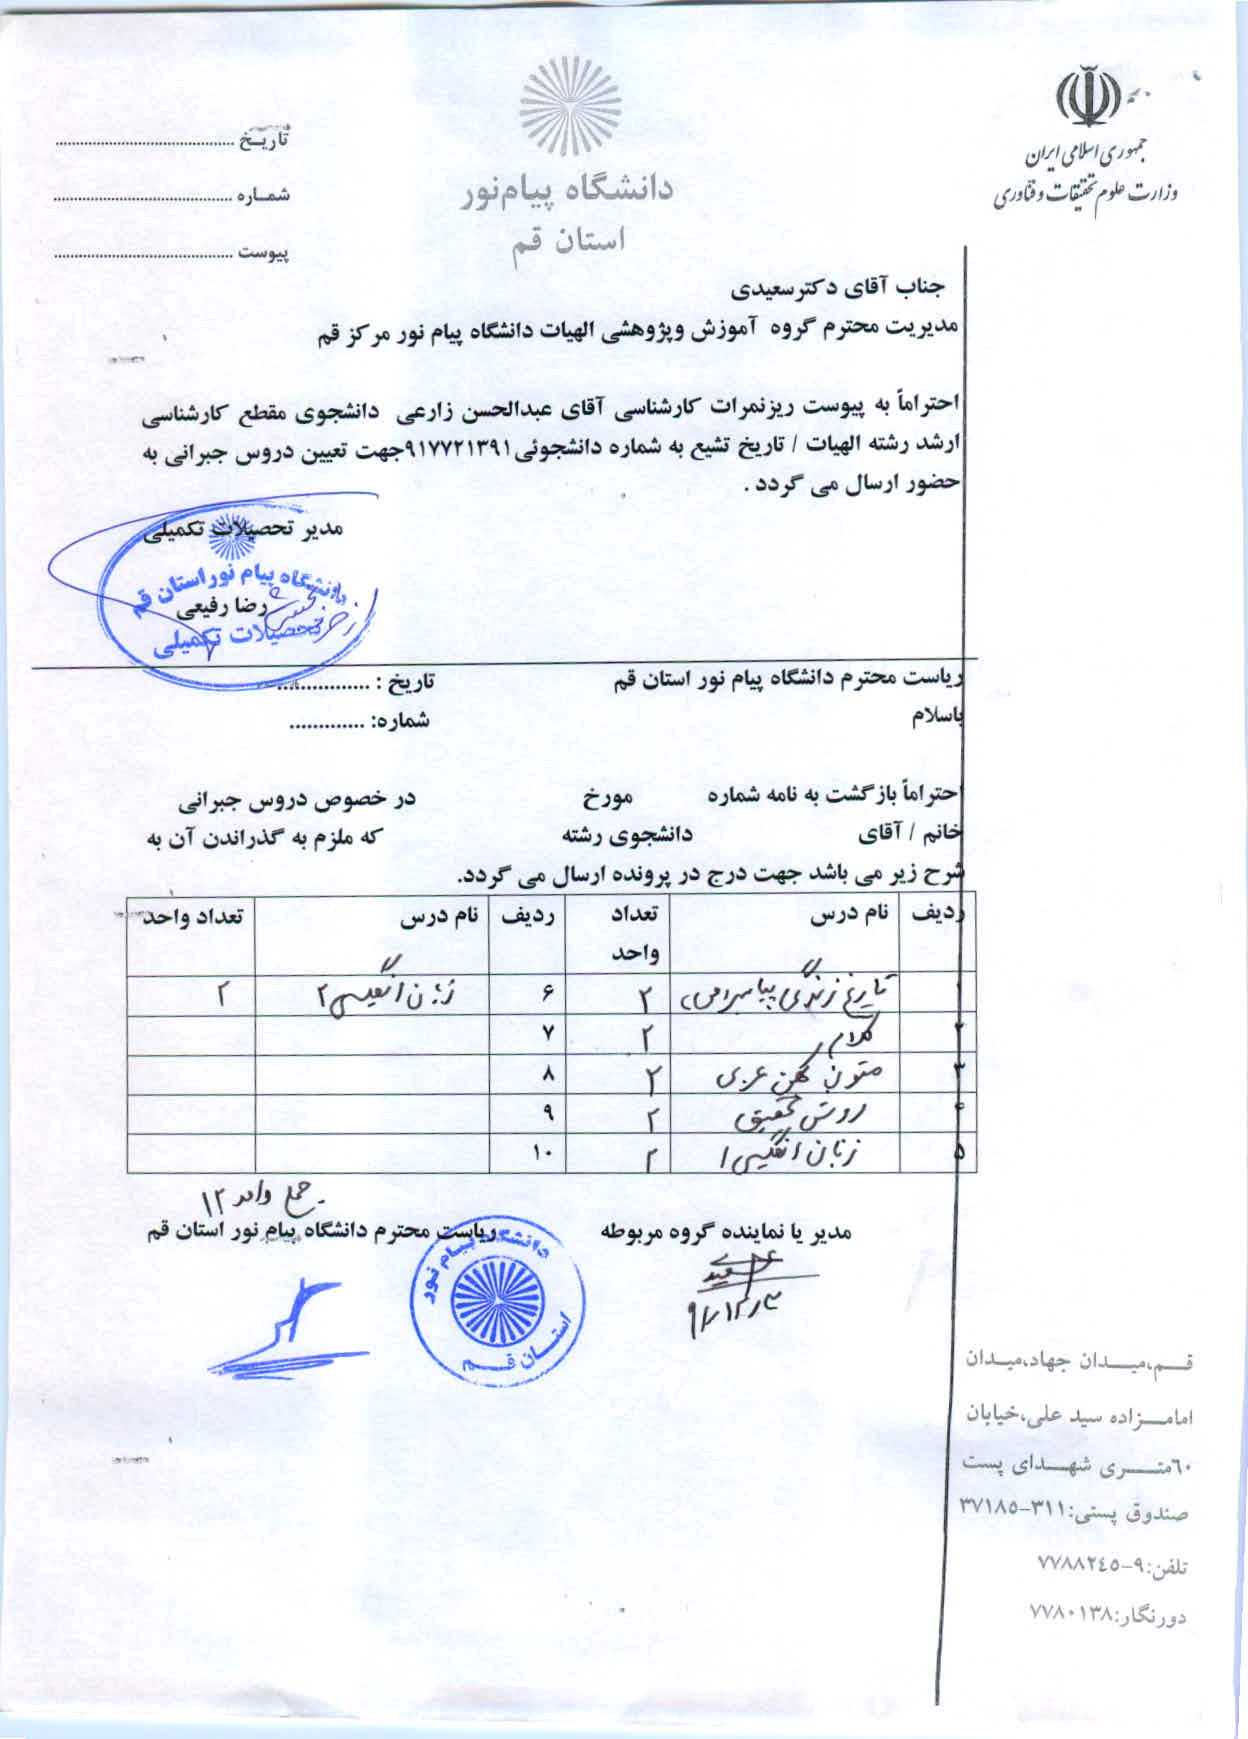 جمهوری اسلامی ایران
وزارت علوم تحقیقات و فناوری
دانشگاه پیام‌نور
استان قم
تاریخ ........................................
شماره ........................................
پیوست ........................................
جناب آقای دکترسعیدی
مدیریت محترم گروه آموزش وپژوهشی الهیات دانشگاه پیام نور مرکز قم
احتراماً به پیوست ریزنمرات کارشناسی آقای عبدالحسن زارعی دانشجوی مقطع کارشناسی
ارشد رشته الهیات / تاریخ تشیع به شماره دانشجوئی۹۱۷۷۲۱۳۹۱جهت تعیین دروس جبرانی به
حضور ارسال می گردد .
مدیر تحصیلات تکمیلی
دانشگاه پیام نور استان قم
رضا رفیعی
تحصیلات تکمیلی
ریاست محترم دانشگاه پیام نور استان قم تاریخ : ................
باسلام شماره: .............
احتراماً بازگشت به نامه شماره مورخ در خصوص دروس جبرانی
خانم / آقای دانشجوی رشته که ملزم به گذراندن آن به
شرح زیر می باشد جهت درج در پرونده ارسال می گردد.
ردیف نام درس تعداد واحد ردیف نام درس تعداد واحد
۱ تاریخ زندگی پیامبر(ص) ۲ ۶ زبان انگلیسی ۲ ۲
۲ کلام ۲ ۷
۳ متون کهن عربی ۲ ۸
۴ روش تحقیق ۲ ۹
۵ زبان انگلیسی ۱ ۲ ۱۰
جمع واحد ۱۲
مدیر یا نماینده گروه مربوطه ریاست محترم دانشگاه پیام نور استان قم
دانشگاه پیام نور
استان قم
قم،میدان جهاد،میدان
امامزاده سید علی،خیابان
۶۰متری شهدای پست
صندوق پستی:۳۱۱-۳۷۱۸۵
تلفن:۹-۷۷۸۸۲۴۵
دورنگار:۷۷۸۰۱۳۸